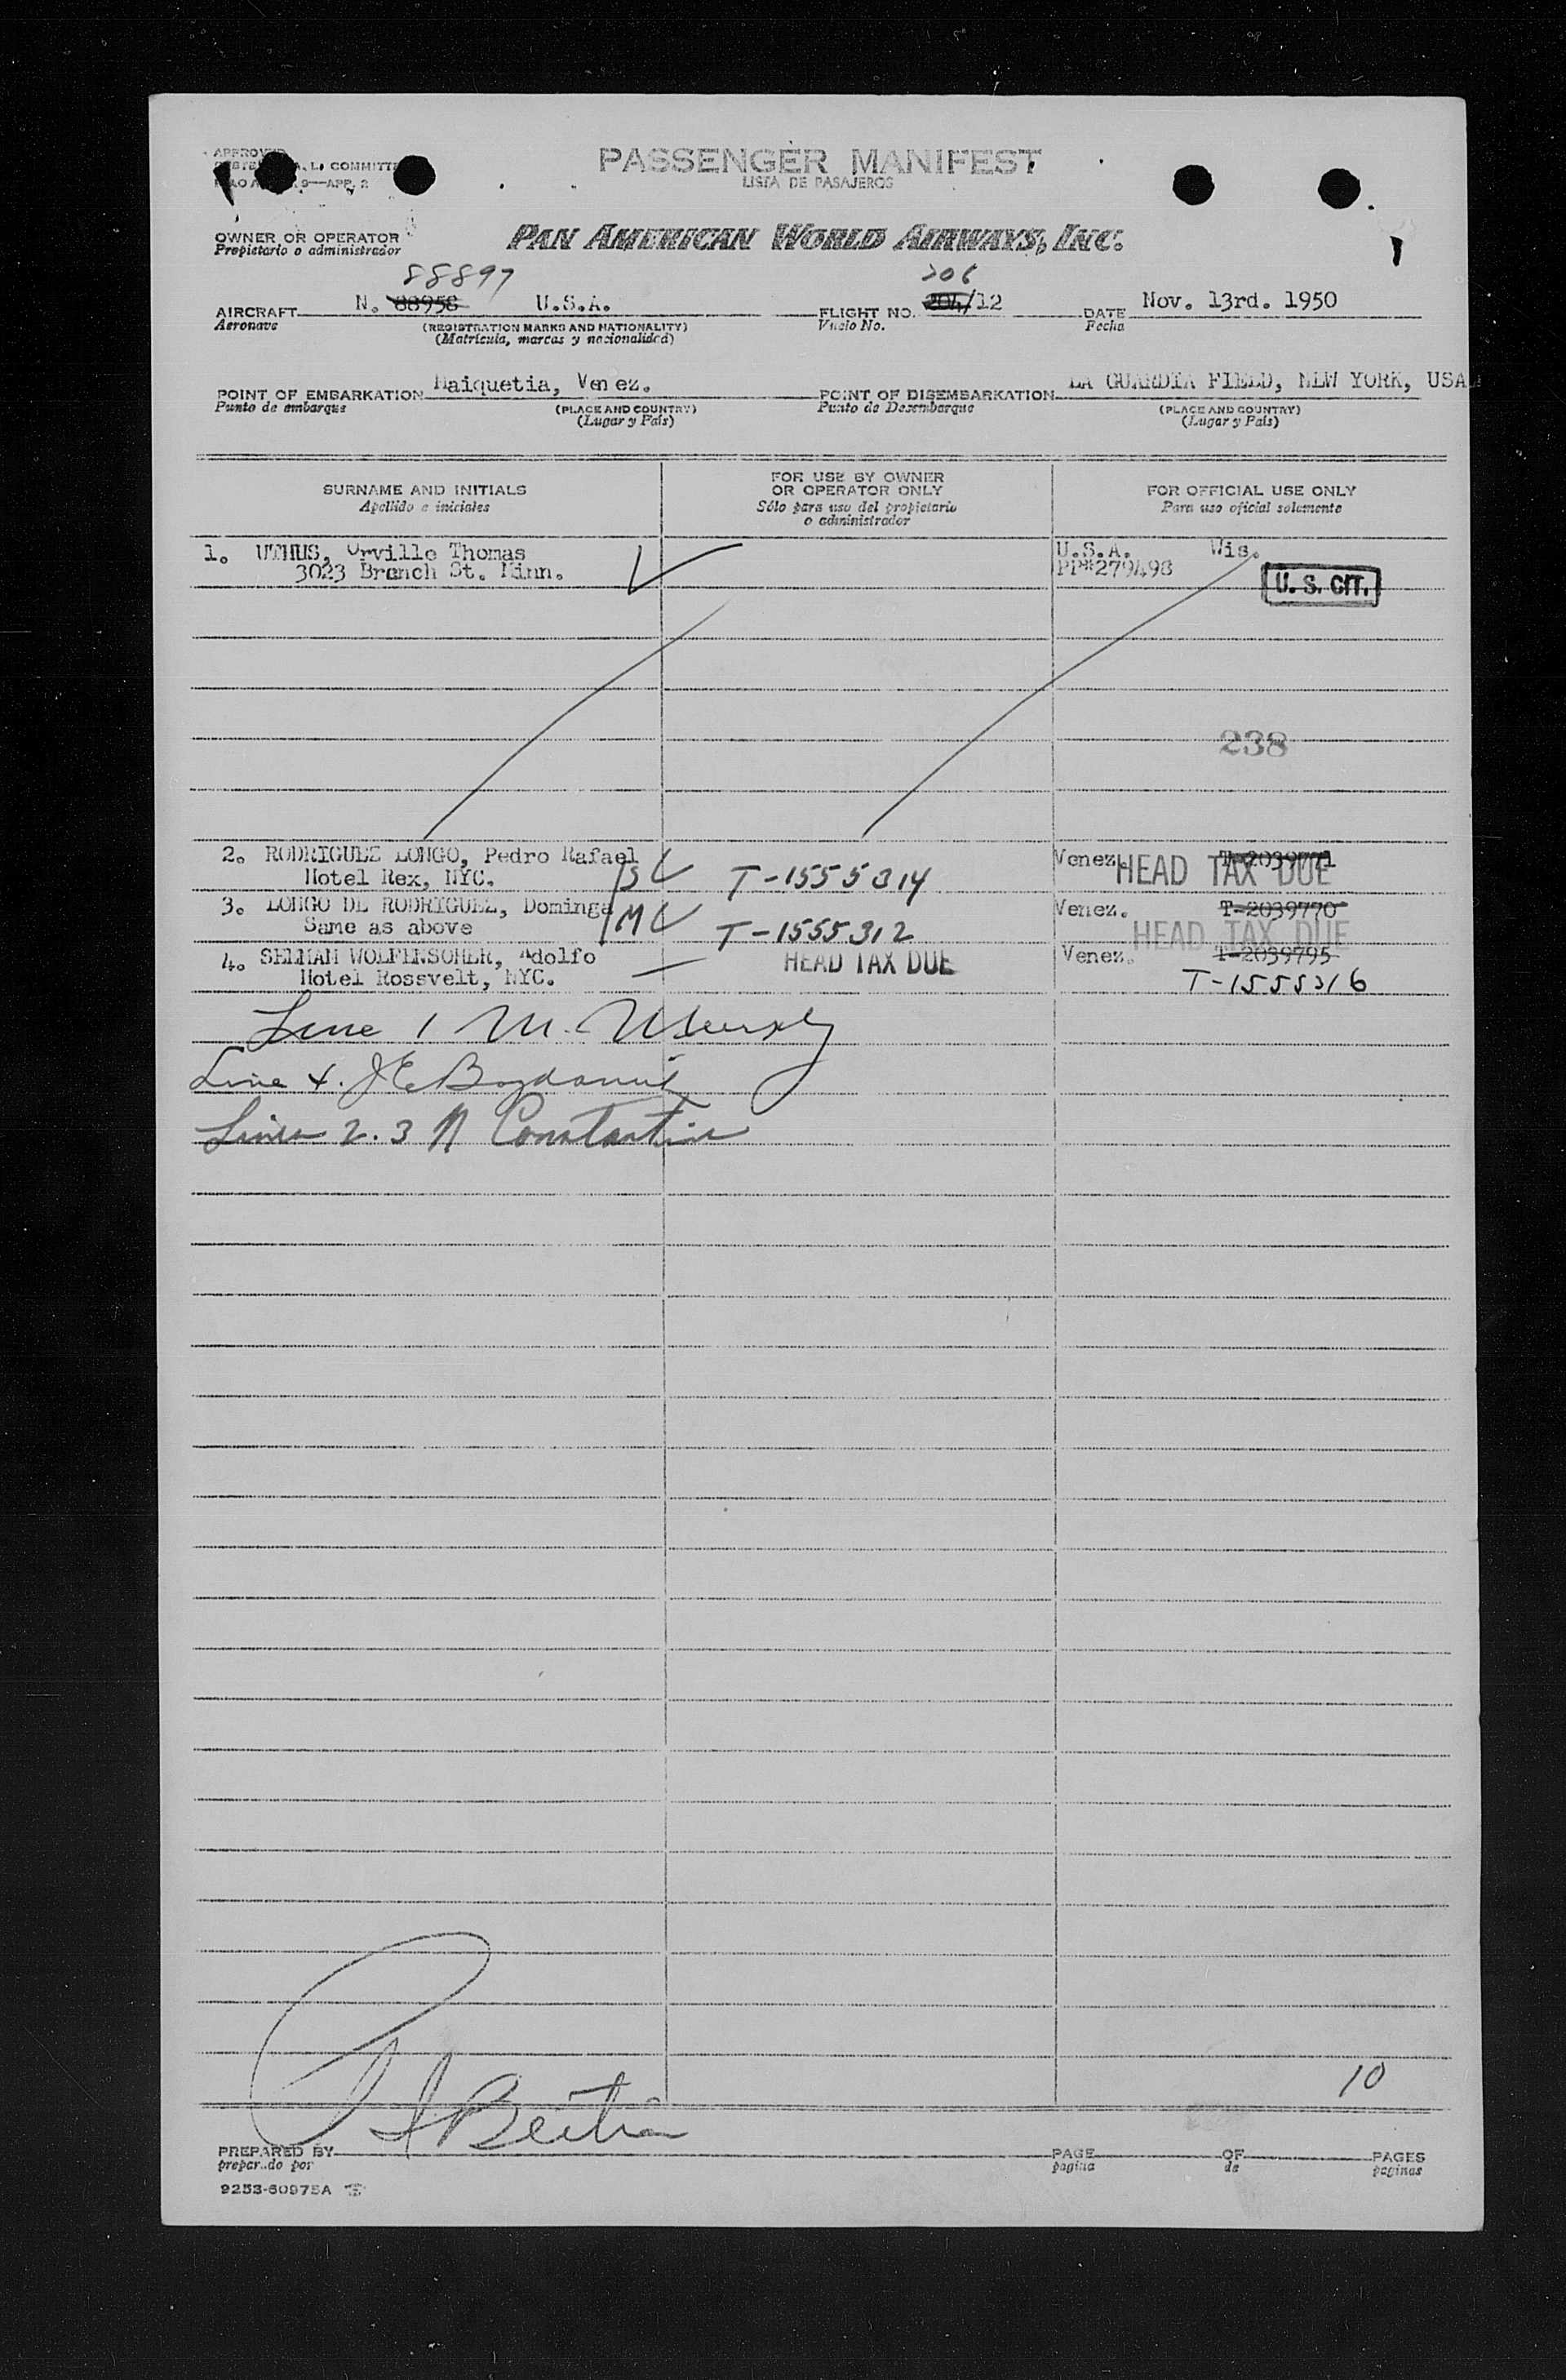 PASSENGER MANIFEST
LISTA DE PASAJEROS
APPROVED
A. L. COMMITTE
9—APP. 2
OWNER OR OPERATOR
Propietario o administrador
PAN AMERICAN WORLD AIRWAYS, INC.
88897
206
AIRCRAFT N. 88958 U.S.A.
Aeronave
(REGISTRATION MARKS AND NATIONALITY)
(Matrícula, marcas y nacionalidad)
FLIGHT NO. 204/12
Vuelo No.
DATE Nov. 13rd. 1950
Fecha
POINT OF EMBARKATION Maiquetia, Venez.
Punto de embarque
(PLACE AND COUNTRY)
(Lugar y País)
POINT OF DISEMBARKATION LA GUARDIA FIELD, NEW YORK, USA
Punto de Desembarque
(PLACE AND COUNTRY)
(Lugar y País)
SURNAME AND INITIALS
Apellido e iniciales
FOR USE BY OWNER
OR OPERATOR ONLY
Sólo para uso del propietario
o administrador
FOR OFFICIAL USE ONLY
Para uso oficial solamente
1. UTHUS, Orville Thomas U.S.A. Wis.
3023 Branch St. Minn. PP#279498
U. S. CIT.
238
2. RODRIGUEZ LONGO, Pedro Rafael Venez. T-2039771
Hotel Rex, NYC. S T-1555314 HEAD TAX DUE
3. LONGO DE RODRIGUEZ, Dominga Venez. T-2039770
Same as above M T-1555312 HEAD TAX DUE
4. SELMAN WOLFENSOHER, Adolfo HEAD TAX DUE Venez. T-2039795
Hotel Rossvelt, NYC. T-1555316
Line 1 M.
Line 4. J E
Lines 2. 3 N Constantine
10
PREPARED BY
preparado por
PAGE OF PAGES
pagina de paginas
9253-60975A